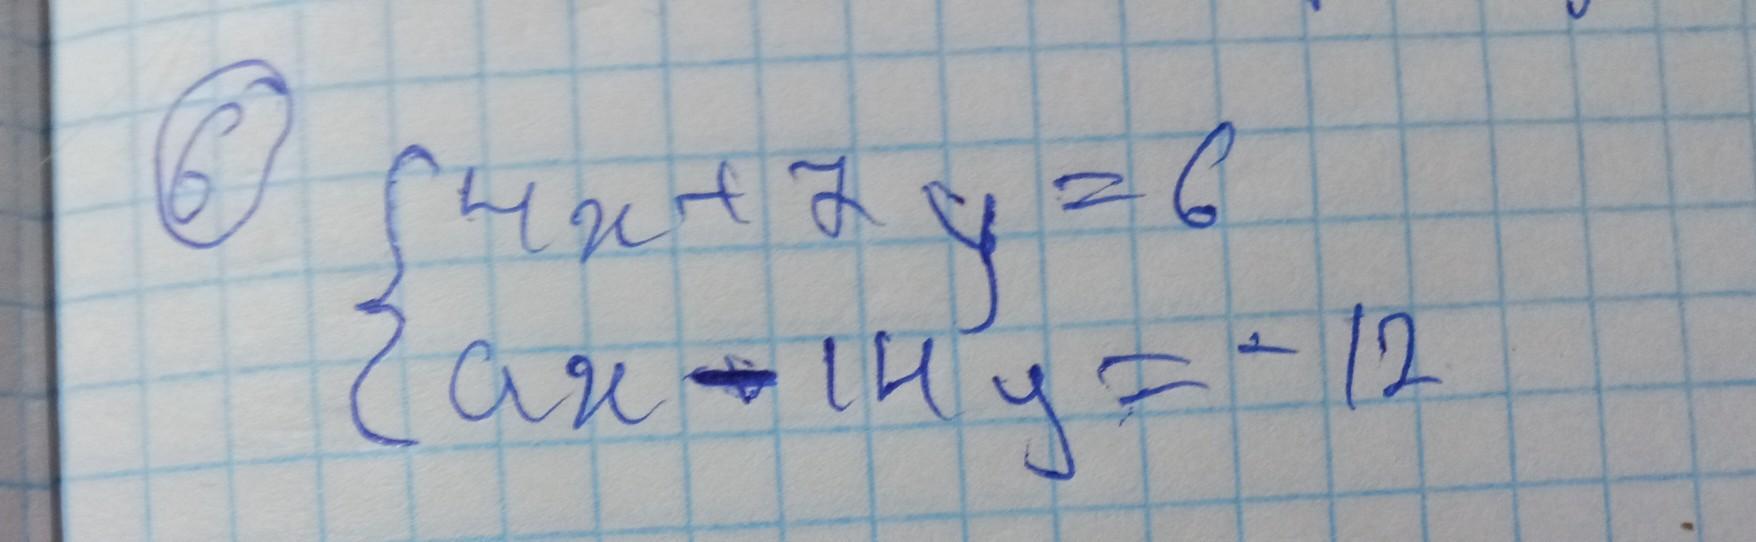 6
4x + 7y = 6
ax - 14y = -12